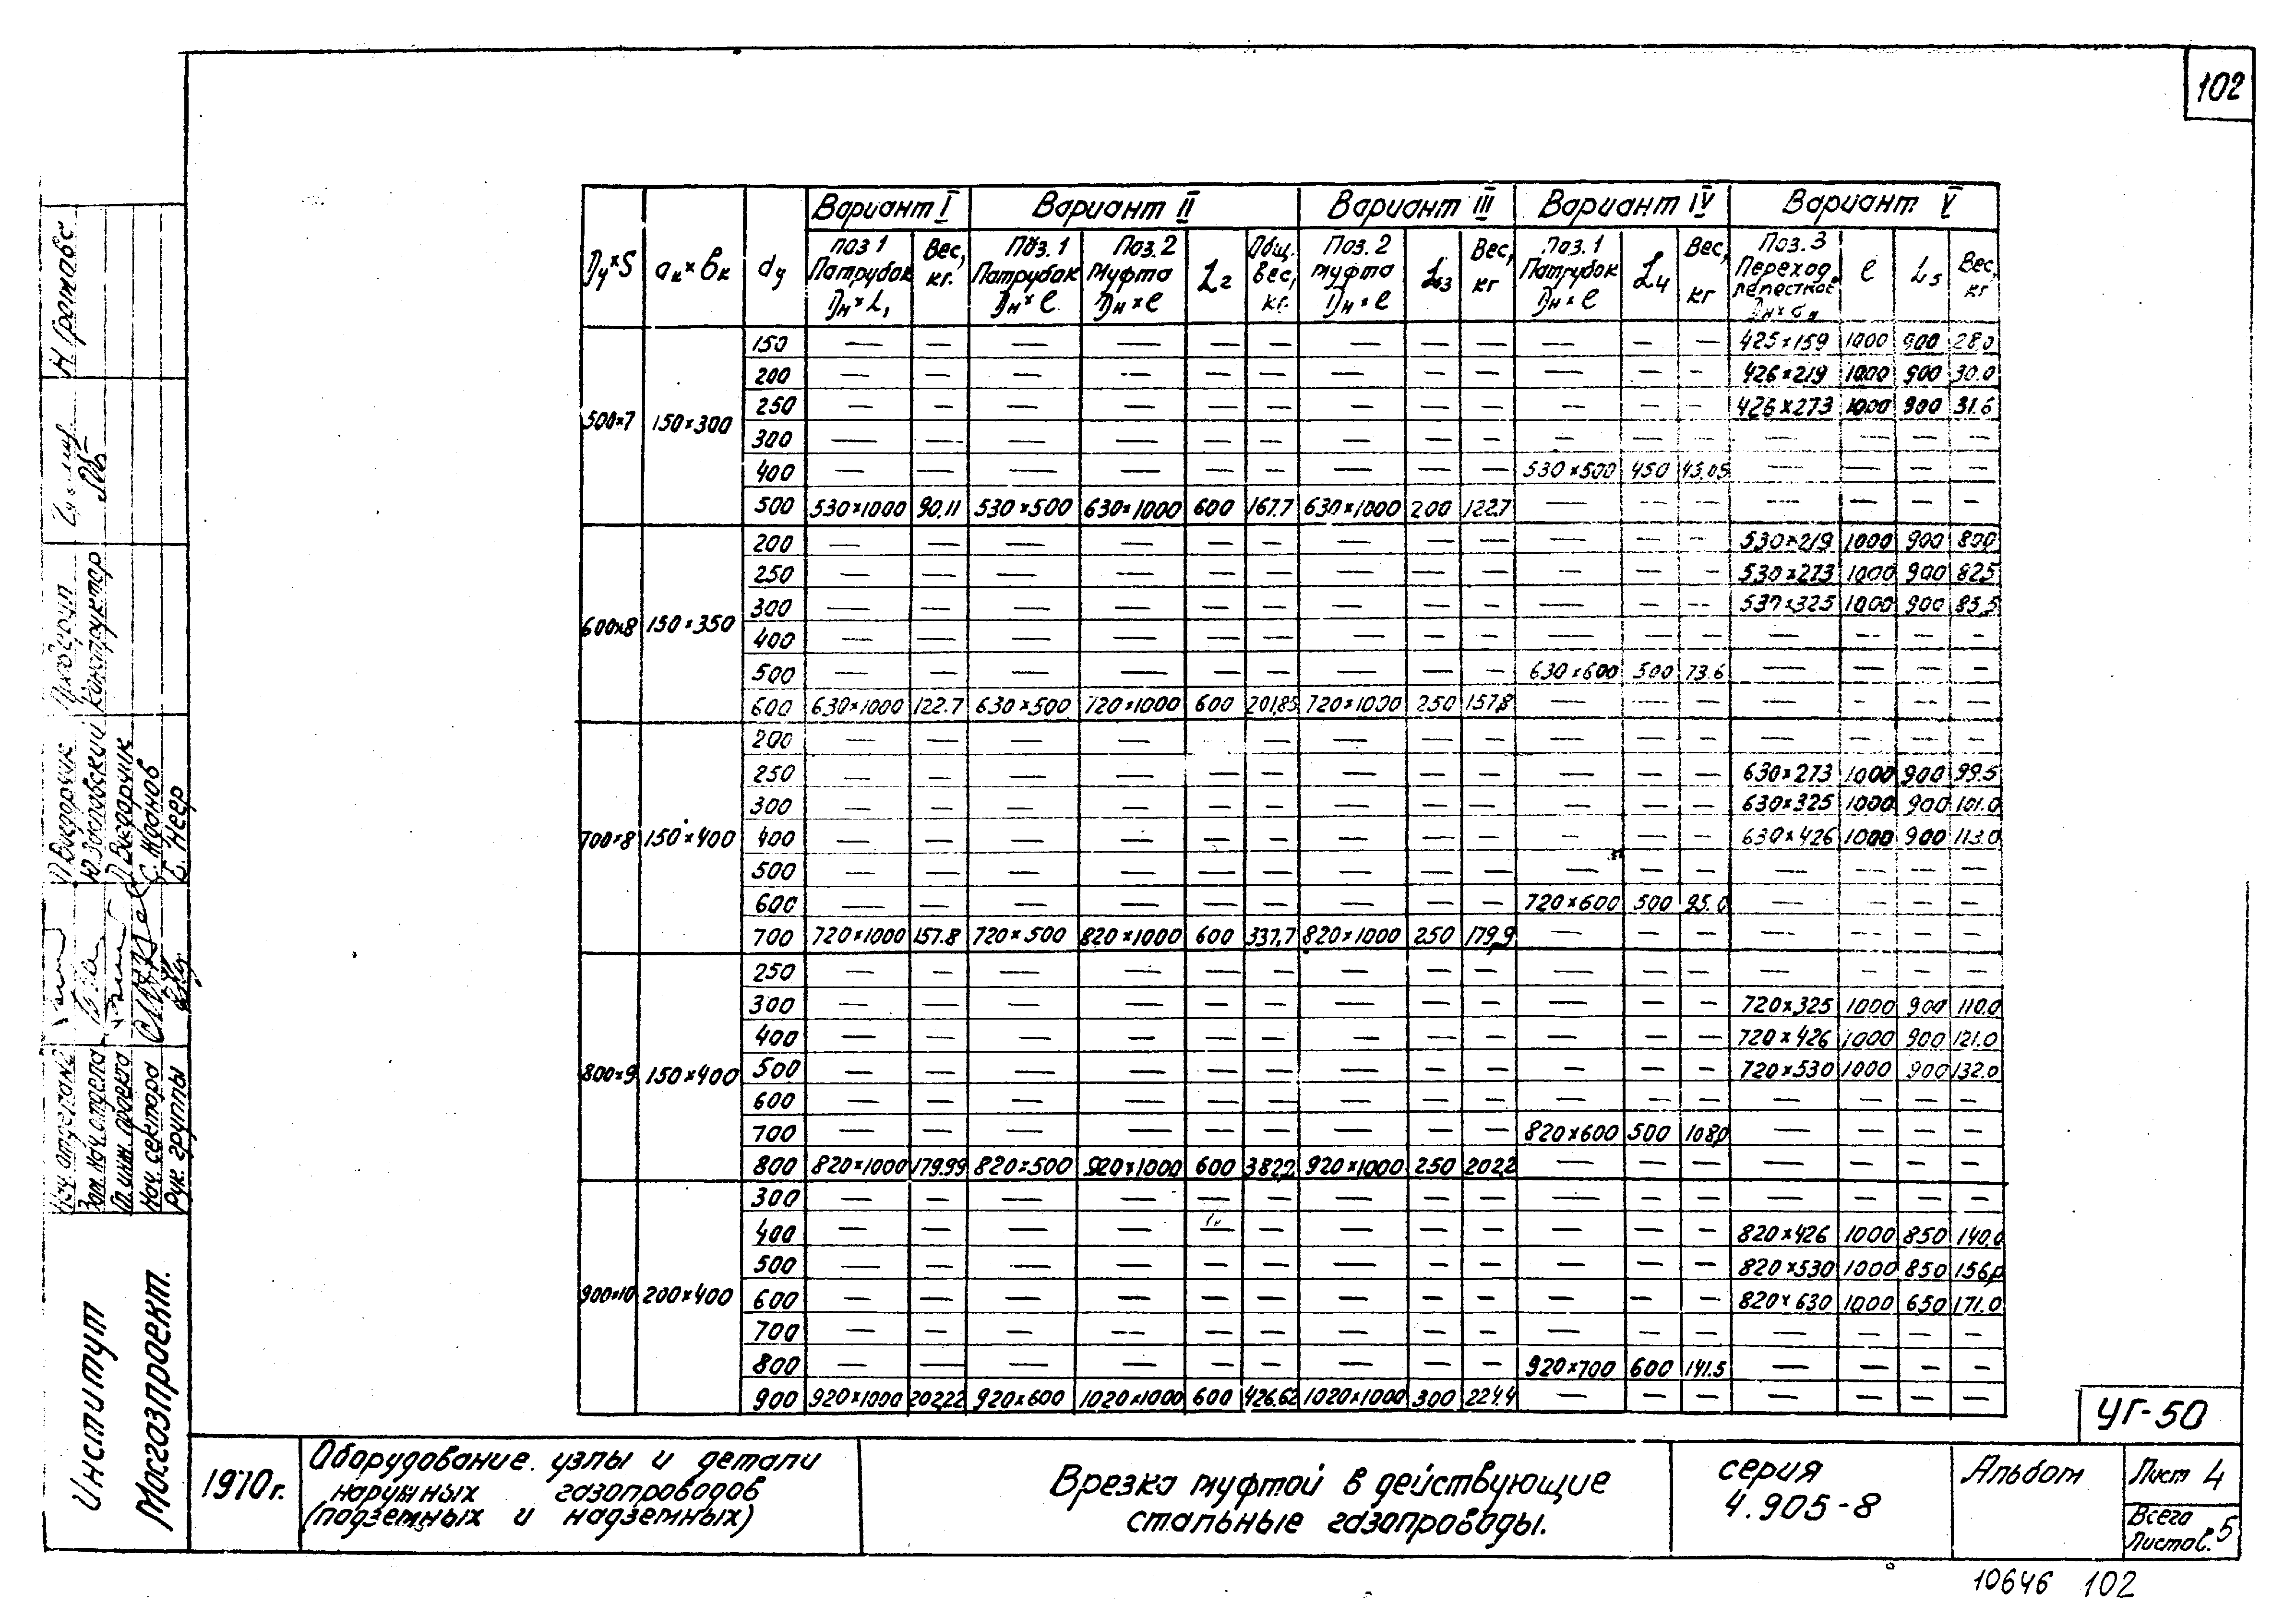 102
Вариант I Вариант II Вариант III Вариант IV Вариант V
Dу×S aк×bк dу
Поз 1 Патрубок Dн×L₁ Вес, кг. Поз. 1 Патрубок Dн×l Поз. 2 Муфта Dн×l L₂ Общ. Вес, кг. Поз. 2 муфта Dн×l L₃ Вес, кг Поз. 1 Патрубок Dн×l L₄ Вес, кг Поз. 3 Переход лепестков. l L₅ Вес, кг
500×7 150×300
150 — — — — — — — — — — — — 425×159 1000 900 28.0
200 — — — — — — — — — — — — 426×219 1000 900 30.0
250 — — — — — — — — — — — — 426×273 1000 900 31.6
300 — — — — — — — — — — — — — — — —
400 — — — — — — — — — 530×500 450 43.05 — — — —
500 530×1000 90.11 530×500 630×1000 600 167.7 630×1000 200 122.7 — — — — — — —
600×8 150×350
200 — — — — — — — — — — — — 530×219 1000 900 80.0
250 — — — — — — — — — — — — 530×273 1000 900 82.5
300 — — — — — — — — — — — — 530×325 1000 900 85.5
400 — — — — — — — — — — — — — — — —
500 — — — — — — — — — 630×600 500 73.6 — — — —
600 630×1000 122.7 630×500 720×1000 600 201,85 720×1000 250 157,8 — — — — — — —
700×8 150×400
200 — — — — — — — — — — — — — — — —
250 — — — — — — — — — — — — 630×273 1000 900 99.5
300 — — — — — — — — — — — — 630×325 1000 900 101.0
400 — — — — — — — — — — — — 630×426 1000 900 113.0
500 — — — — — — — — — — — —
600 — — — — — — — — — 720×600 500 95.0 — — — —
700 720×1000 157.8 720×500 820×1000 600 337,7 820×1000 250 179,9 — — — — — — —
800×9 150×400
250 — — — — — — — — — — — — — — — —
300 — — — — — — — — — — — — 720×325 1000 900 110.0
400 — — — — — — — — — — — — 720×426 1000 900 121.0
500 — — — — — — — — — — — — 720×530 1000 900 132.0
600 — — — — — — — — — — — — — — — —
700 — — — — — — — — — 820×600 500 108,0 — — — —
800 820×1000 179.99 820×500 920×1000 600 382,2 920×1000 250 202,2 — — — — — — —
900×10 200×400
300 — — — — — — — — — — — — — — — —
400 — — — — — — — — — — — — 820×426 1000 850 140,0
500 — — — — — — — — — — — — 820×530 1000 850 156,0
600 — — — — — — — — — — — — 820×630 1000 650 171.0
700 — — — — — — — — — — — — — — — —
800 — — — — — — — — — 920×700 600 141.5 — — — —
900 920×1000 202,22 920×600 1020×1000 600 426.62 1020×1000 300 224.4 — — — — — — —
УГ-50
1970г.
Оборудование, узлы и детали
наружных газопроводов
(подземных и надземных)
Врезка муфтой в действующие
стальные газопроводы.
серия
4.905-8
Альбом
Лист 4
Всего
Листов. 5
10646 102
Институт
Мосгазпроект.
Зам. нач. отдела
Гл. инж. проекта
Нач. сектора
Рук. группы
С. Жданов
Б. Неер
конструктор